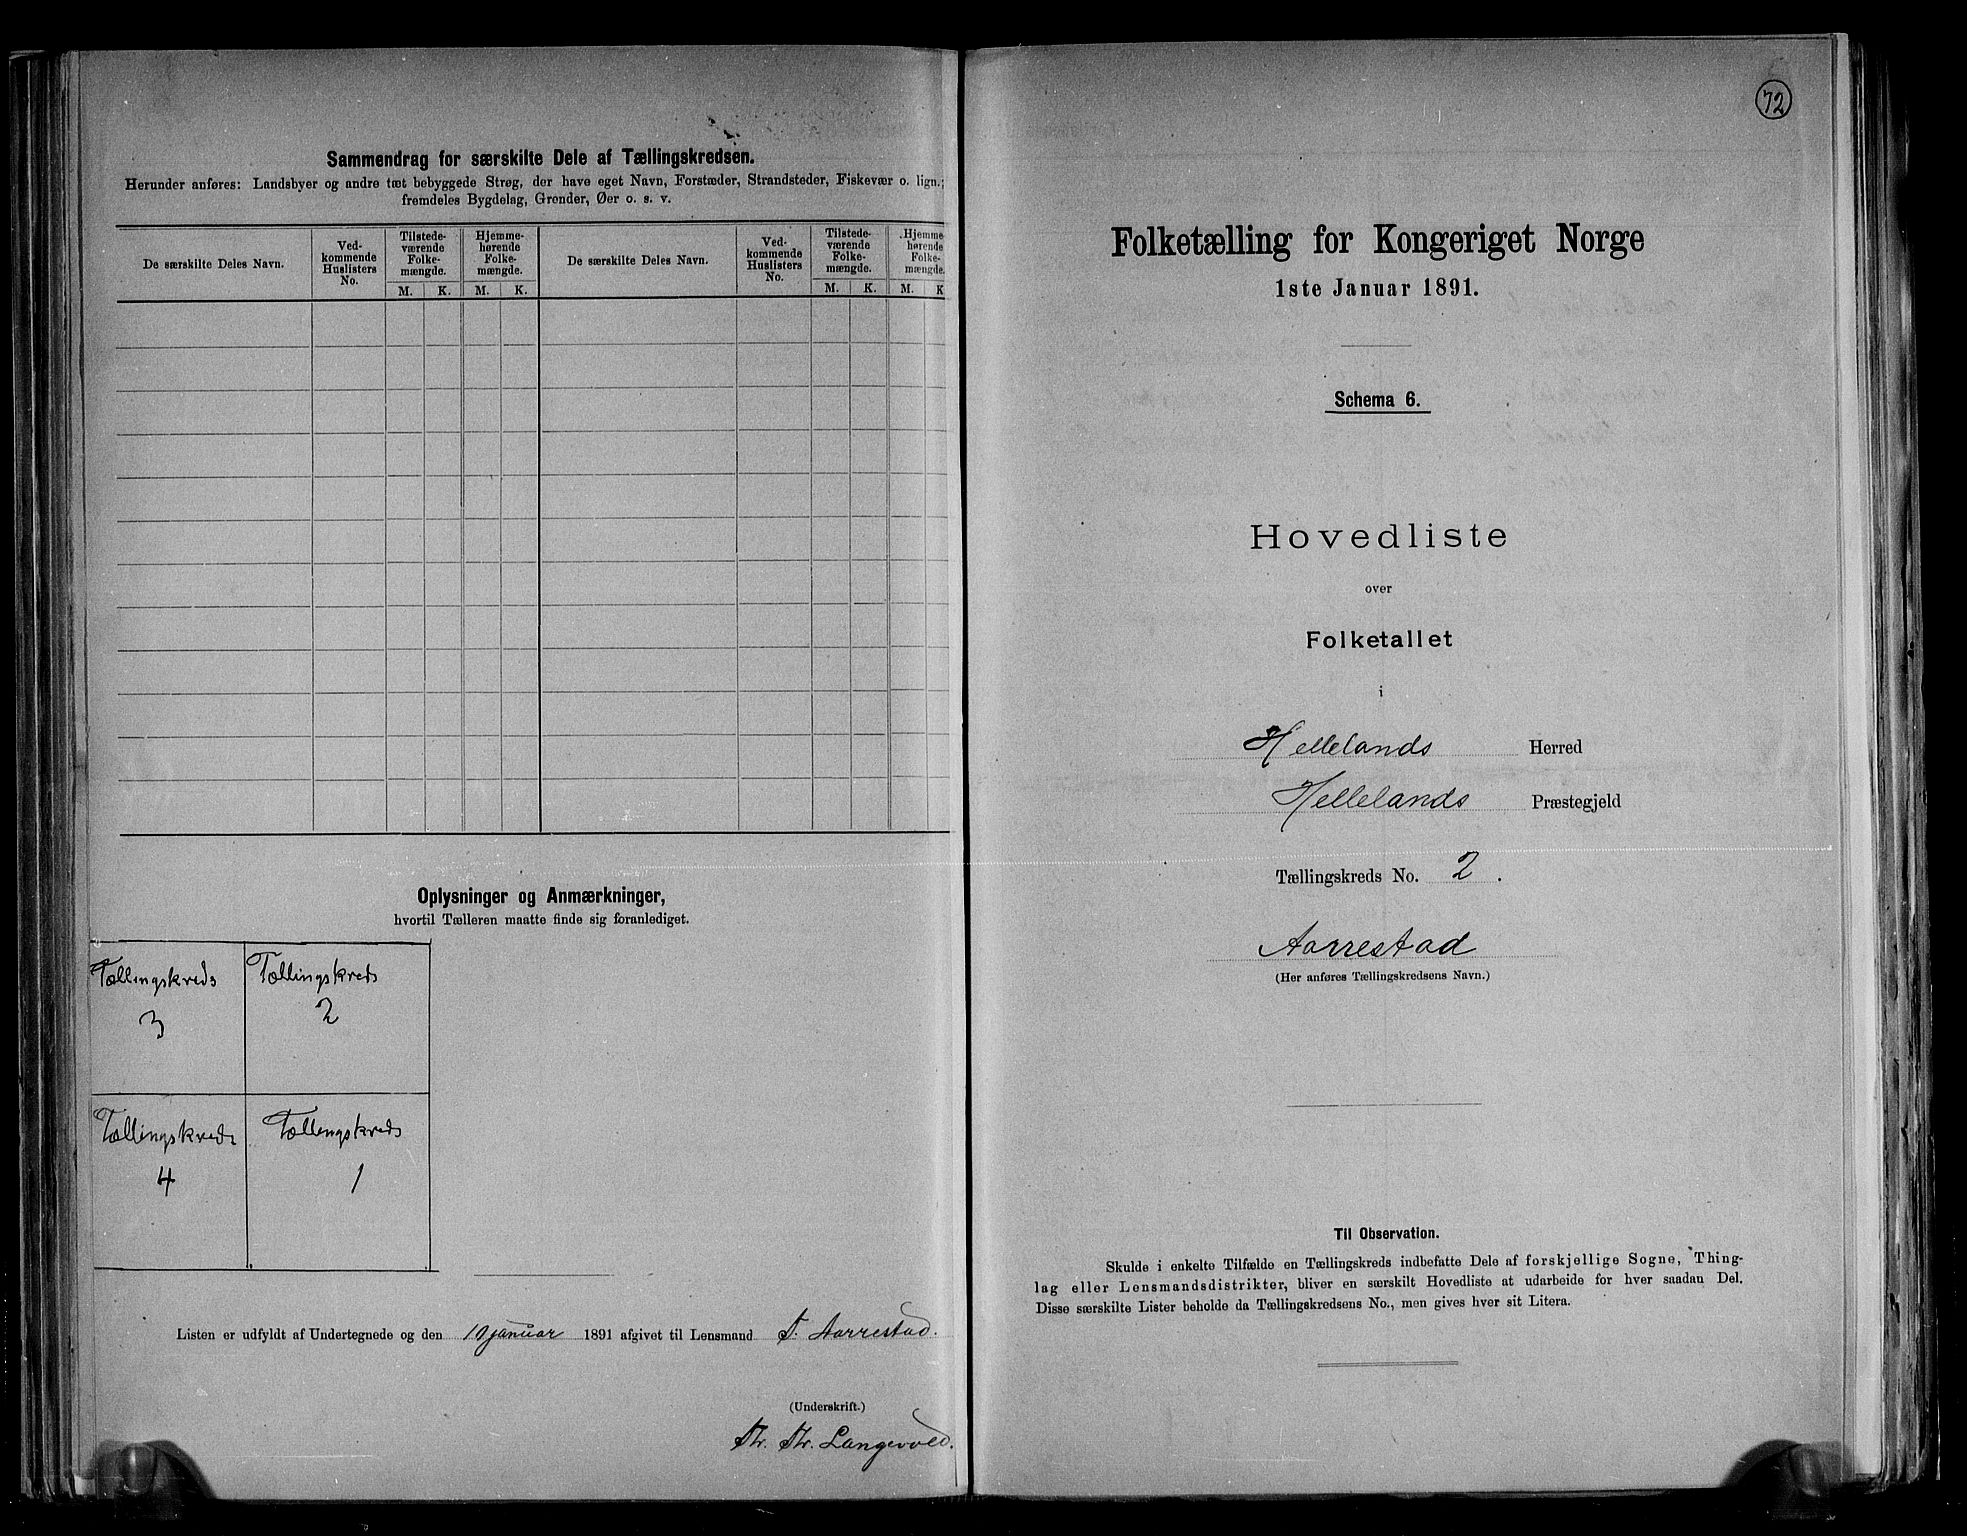 Sammendrag for særskilte Dele af Tællingskredsen.
Herunder anføres: Landsbyer og andre tæt bebyggede Strøg, der have eget Navn, Forstæder, Strandsteder, Fiskevær o. lign.;
fremdeles Bygdelag, Grender, Øer o. s. v.
De særskilte Deles Navn.
Ved-
kommende
Huslisters
No.
Tilstede-
værende
Folke-
mængde.
M. K.
Hjemme-
hørende
Folke-
mængde.
M. K.
De særskilte Deles Navn.
Ved-
kommende
Huslisters
No.
Tilstede-
værende
Folke-
mængde.
M. K.
Hjemme-
hørende
Folke-
mængde.
M. K
Oplysninger og Anmærkninger,
hvortil Tælleren maatte finde sig foranlediget.
Tællingskreds
3
Tællingskreds
2
Tællingskreds
4
Tællingskreds
1
Listen er udfyldt af Undertegnede og den 10 januar 1891 afgivet til Lensmand T. Aarrestad.
(Underskrift.)
Th. Th. Langevold.
72
Folketælling for Kongeriget Norge
1ste Januar 1891.
Schema 6.
Hovedliste
over
Folketallet
i
Hellelands Herred
Hellelands Præstegjeld
Tællingskreds No. 2.
Aarrestad
(Her anføres Tællingskredsens Navn.)
Til Observation.
Skulde i enkelte Tilfælde en Tællingskreds indbefatte Dele af forskjellige Sogne, Thing-
lag eller Lensmandsdistrikter, bliver en særskilt Hovedliste at udarbeide for hver saadan Del.
Disse særskilte Lister beholde da Tællingskredsens No., men gives hver sit Litera.